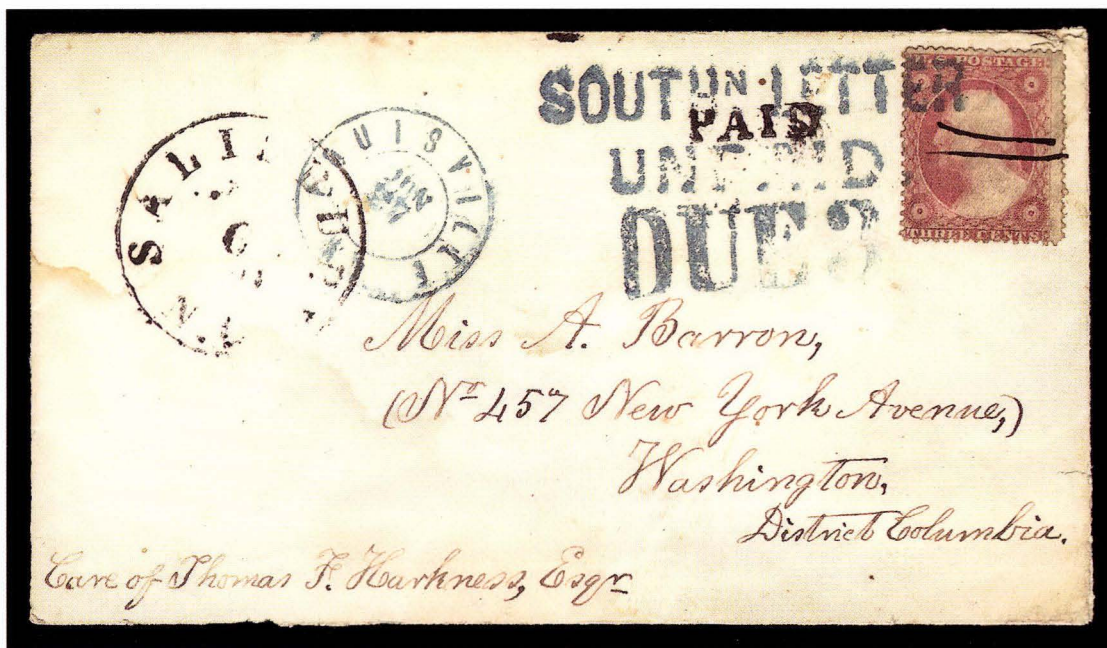 SOUTN LETTER
UN
PAID
UNPAID.
DUE 3
POSTAGE
THREE CENTS
SALI
N.
Miss A. Barron,
(Nº 457 New York Avenue,)
Washington,
District Columbia.
Care of Thomas F. Harkness, Esqr